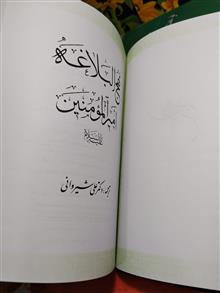 نهج البلاغه
امیرالمؤمنین
علیه السلام
ترجمه: دکتر علی شیروانی